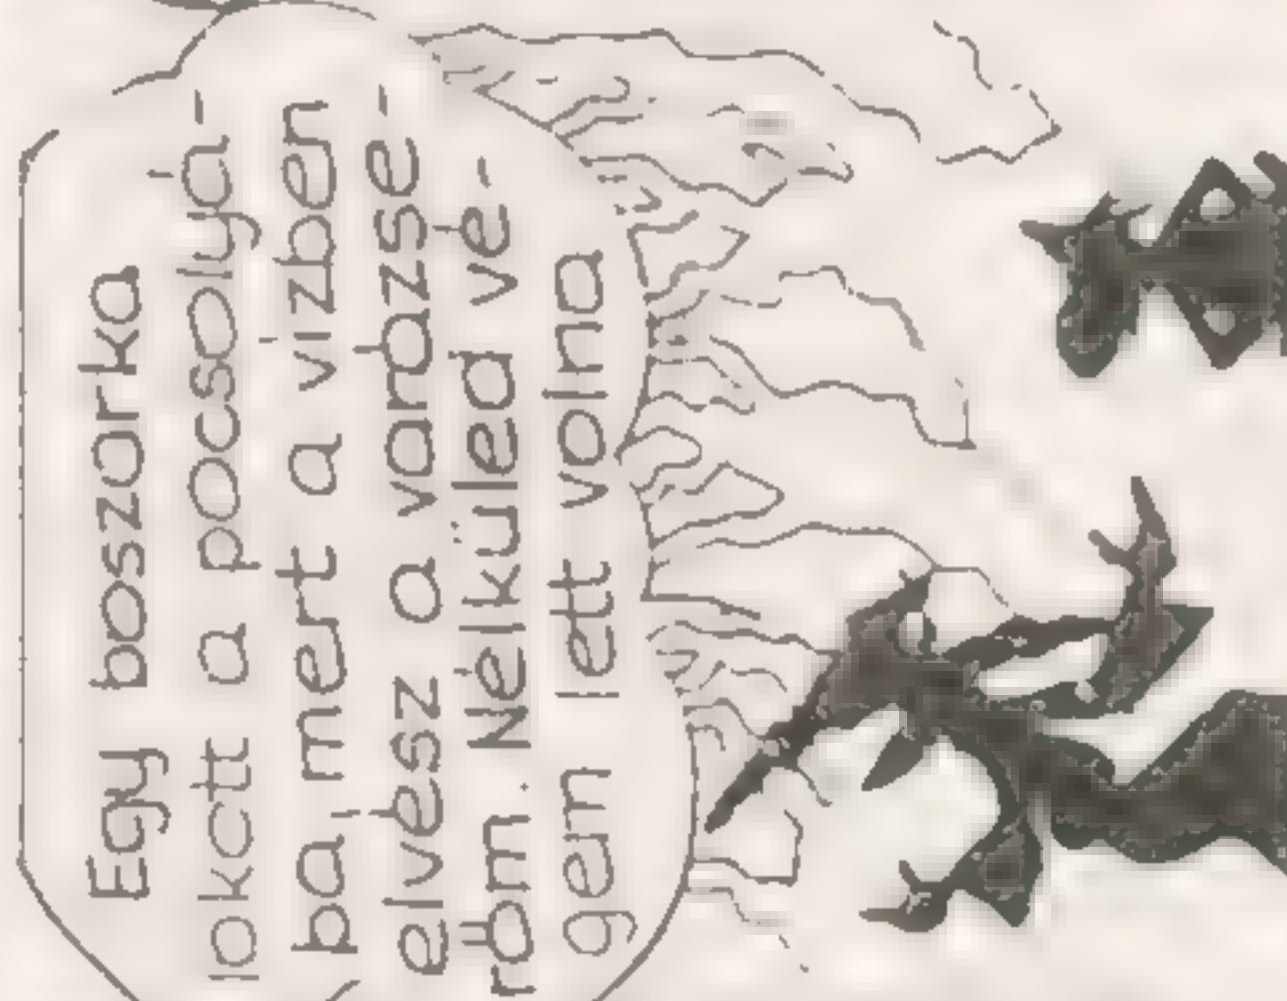 Egy boszorka
lökött a pocsolyá-
ba, mert a vízben
elvész a varázse-
rőm. Nélküled vé-
gem lett volna